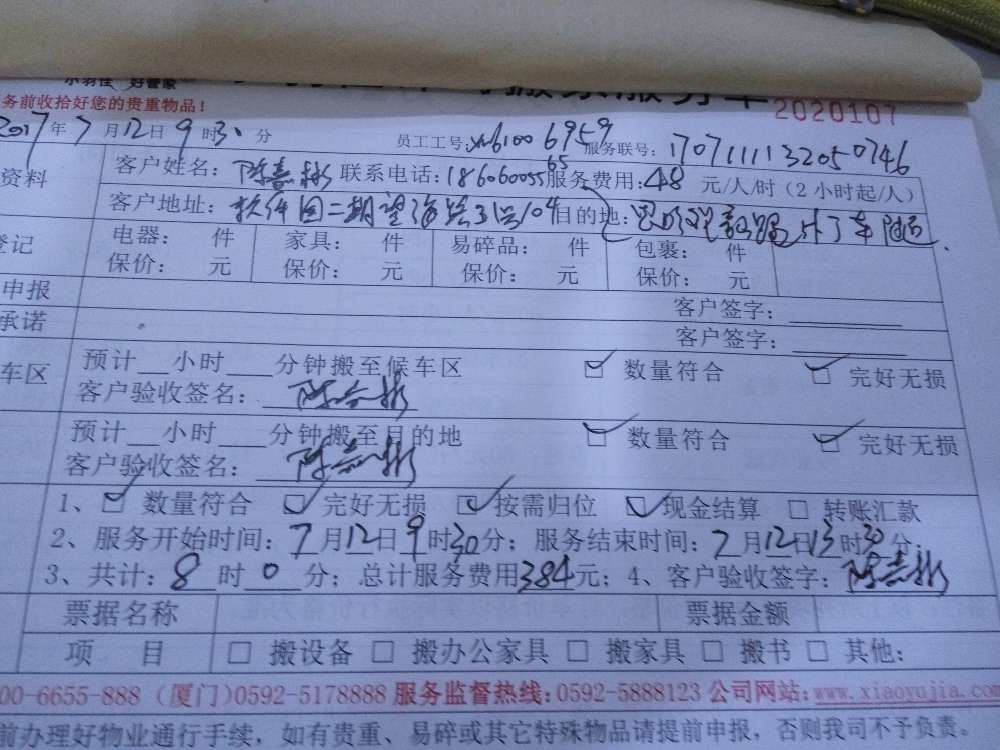 小羽佳 好管家
务前收拾好您的贵重物品！
2020107
2017年7月12日9时30分 员工工号:xm6100 6959 服务联号:1707111132050746
资料 客户姓名:陈嘉彬 联系电话:18606005565 服务费用:48元/人/时(2小时起/人)
客户地址:软件园二期望海路31号104 目的地:
登记 电器: 件 家具: 件 易碎品: 件 包裹: 件
保价: 元 保价: 元 保价: 元 保价: 元
申报 客户签字:
承诺 客户签字:
车区 预计__小时___分钟搬至候车区 数量符合 完好无损
客户验收签名:
预计__小时___分钟搬至目的地 数量符合 完好无损
客户验收签名:
1、 数量符合 完好无损 按需归位 现金结算 转账汇款
2、服务开始时间:7月12日9时30分;服务结束时间:7月12日13时30分;
3、共计:8时0分;总计服务费用384元;4、客户验收签字:
票据名称 票据金额
项 目 搬设备 搬办公家具 搬家具 搬书 其他:
00-6655-888 (厦门)0592-5178888 服务监督热线:0592-5888123 公司网站:www.xiaoyujia.com
前办理好物业通行手续，如有贵重、易碎或其它特殊物品请提前申报，否则我司不予负责。